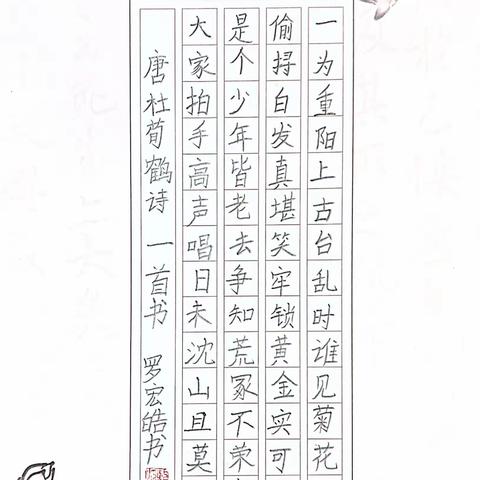 一为重阳上古台乱时谁见菊花
偷挦白发真堪笑牢锁黄金实可
是个少年皆老去争知荒冢不荣
大家拍手高声唱日未沈山且莫
唐杜荀鹤诗一首书 罗宏皓书